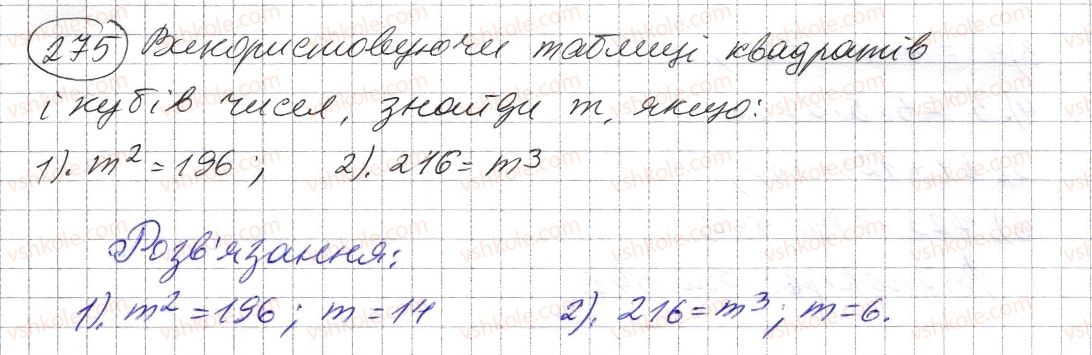 275 Використовуючи таблиці квадратів
і кубів чисел, знайди m, якщо:
1). m² = 196 ; 2). 216 = m³
Розв'язання:
1). m² = 196 ; m = 14 2). 216 = m³ ; m = 6.